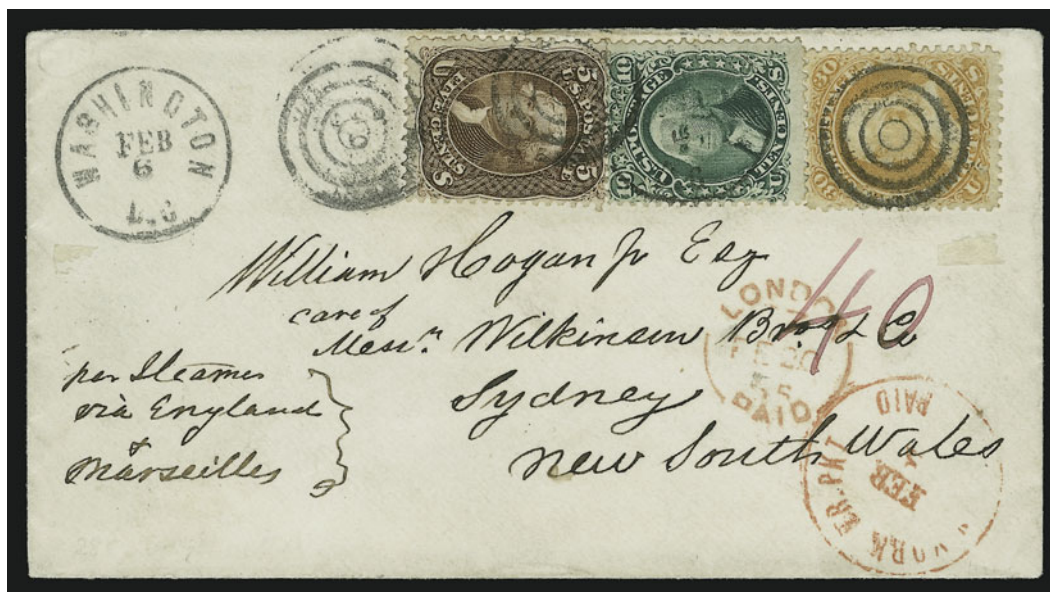 WASHINGTON
FEB
6
D.C
5 U.S. POSTAGE 5
FIVE CENTS
10 U.S. POSTAGE 10
TEN CENTS
30
30
William Hogan Jr Esq
care of
Messrs. Wilkinson Bros & Co
Sydney
New South Wales
per Steamer
via England
&
Marseilles
40
LONDON
20
PAID
YORK BR. PKT
FEB
PAID